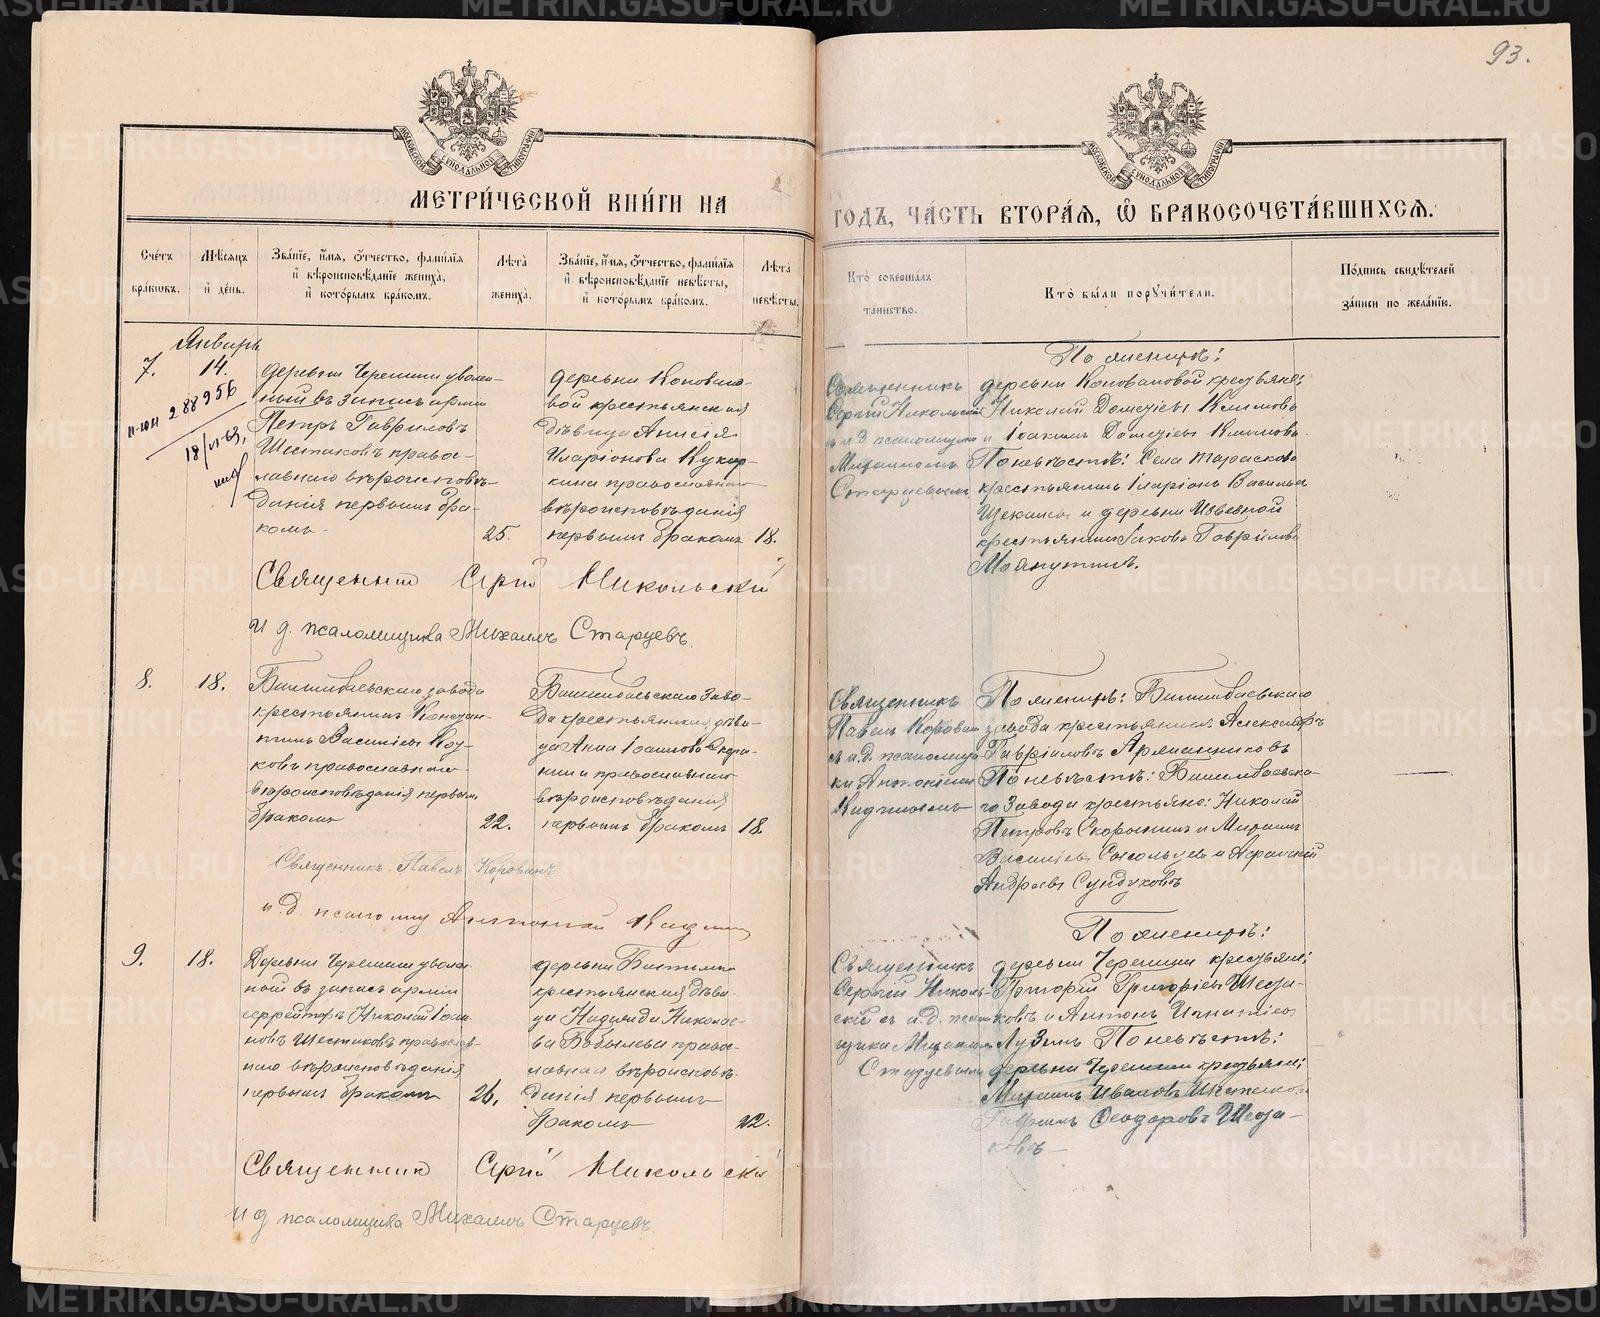 93.
МОСКОВСКОЙ СѴНОДАЛЬНОЙ ТИПОГРАФІИ
МОСКОВСКОЙ СѴНОДАЛЬНОЙ ТИПОГРАФІИ
МЕТРИ́ЧЕСКОЙ КНИ́ГИ НА
ГОДЪ, ЧА́СТЬ ВТОРА́Я, Ѽ БРАКОСОЧЕТА́ВШИХСЯ.
Сче́тъ бра́ковъ.
Мѣ́сяцъ и҆ де́нь.
Зва́нїе, и҆́мя, ѻ҆́тчество, фами́лїя
и҆ вѣроисповѣ́данїе жениха̀,
и҆ кото́рымъ бра́комъ.
Лѣ́та жениха̀.
Зва́нїе, и҆́мя, ѻ҆́тчество, фами́лїя
и҆ вѣроисповѣ́данїе невѣ́сты,
и҆ кото́рымъ бра́комъ.
Лѣ́та невѣ́сты.
Кто̀ соверша́лъ
та́инство.
Кто̀ бы́ли порꙋчи́тели.
По́дпись свидѣ́телей
за́писи по жела́нїю.
Январь
7.
14.
288956
деревни Черемши уволен-
ный въ запасъ арміи
Петръ Гавриловъ
Шестаковъ правос-
лавнаго вѣроисповѣ-
данія первымъ бра-
комъ
25.
деревни Коновало-
вой крестьянская
дѣвица Анисія
Иларіонова Кукар-
кина православнаго
вѣроисповѣданія
первымъ бракомъ
18.
Священникъ
Сергій Никольскій
и.д. псаломщика
Михаиломъ
Старцевымъ
По женихѣ:
деревни Коноваловой крестьяне
Николай Дометіевъ Климовъ
и Іоакимъ Дометіевъ Климовъ
По невѣстѣ: Села Тарасково
крестьянинъ Иларіонъ Васильевъ
Щекинъ и деревни Извезной
крестьянинъ Іаковъ Гавриловъ
Священникъ Сергій Никольскій
И д. псаломщика Михаилъ Старцевъ.
8.
18.
Билимбаевскаго завода
крестьянинъ Констан-
тинъ Васильевъ Коз-
ковъ православнаго
вѣроисповѣданія первымъ
бракомъ
22.
Билимбаевскаго заво-
да крестьянская дѣви-
ца Анна Іоаннова Скоры-
нина православнаго
вѣроисповѣданія
первымъ бракомъ
18.
Священникъ
Павелъ Корованъ
съ и.д. псаломщи-
ка Антоніемъ
По женихѣ: Билимбаевскаго
завода крестьянинъ Александръ
Гавріиловъ Армянниковъ
По невѣстѣ: Билимбаевска-
го завода крестьяне: Николай
Петровъ Скорынинъ и Михаилъ
Васильевъ
Андреевъ Сундуковъ
Священникъ Павелъ Корованъ
и.д. псаломщ Антоній
9.
18.
Деревни Черемши уволен-
ный въ запасъ арміи
ефрейторъ Николай Іоан-
новъ Шестаковъ православ-
наго вѣроисповѣданія
первымъ бракомъ
26.
деревни Битимки
крестьянская дѣви-
ца Надежда Николае-
ва Бобылева правос-
лавнаго вѣроисповѣ-
данія первымъ
бракомъ
22.
Священникъ
Сергій Николь-
скій съ и.д. псалом-
щика Михаиломъ
Старцевымъ
По женихѣ:
деревни Черемши крестьяне:
Григорій Григорьевъ Шеста-
ковъ и Антонъ Игнатіевъ
Лузинъ По невѣстѣ:
деревни Черемши крестьяне:
Михаилъ Ивановъ Шестаковъ
Гавриилъ Ѳеодоровъ Шеста-
ковъ
Священникъ Сергій Никольскій
И д псаломщика Михаилъ Старцевъ.
METRIKI.GASO-URAL.RU